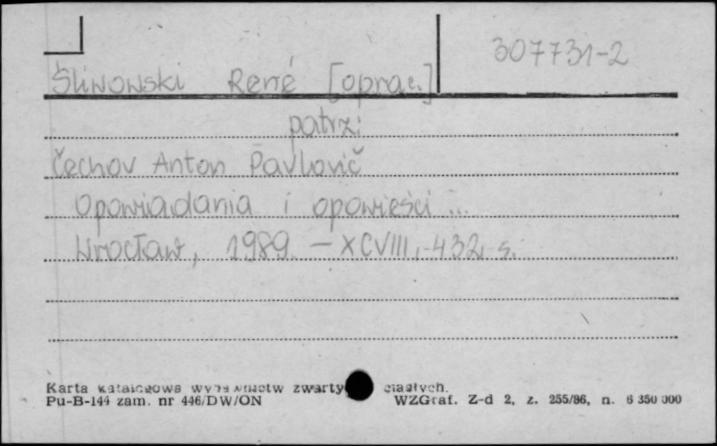 307731-2
Śliwowski René [oprac.]
patrz:
Čechov Anton Pavlovič
Opowiadania i opowieści ...
Wrocław, 1989. - XCVIII, 432 s.
Karta katalogowa wydawnictw zwarty ciągłych.
Pu-B-144 zam. nr 446/DW/ON WZGraf. Z-d 2, z. 255/86, n. 6 350 000